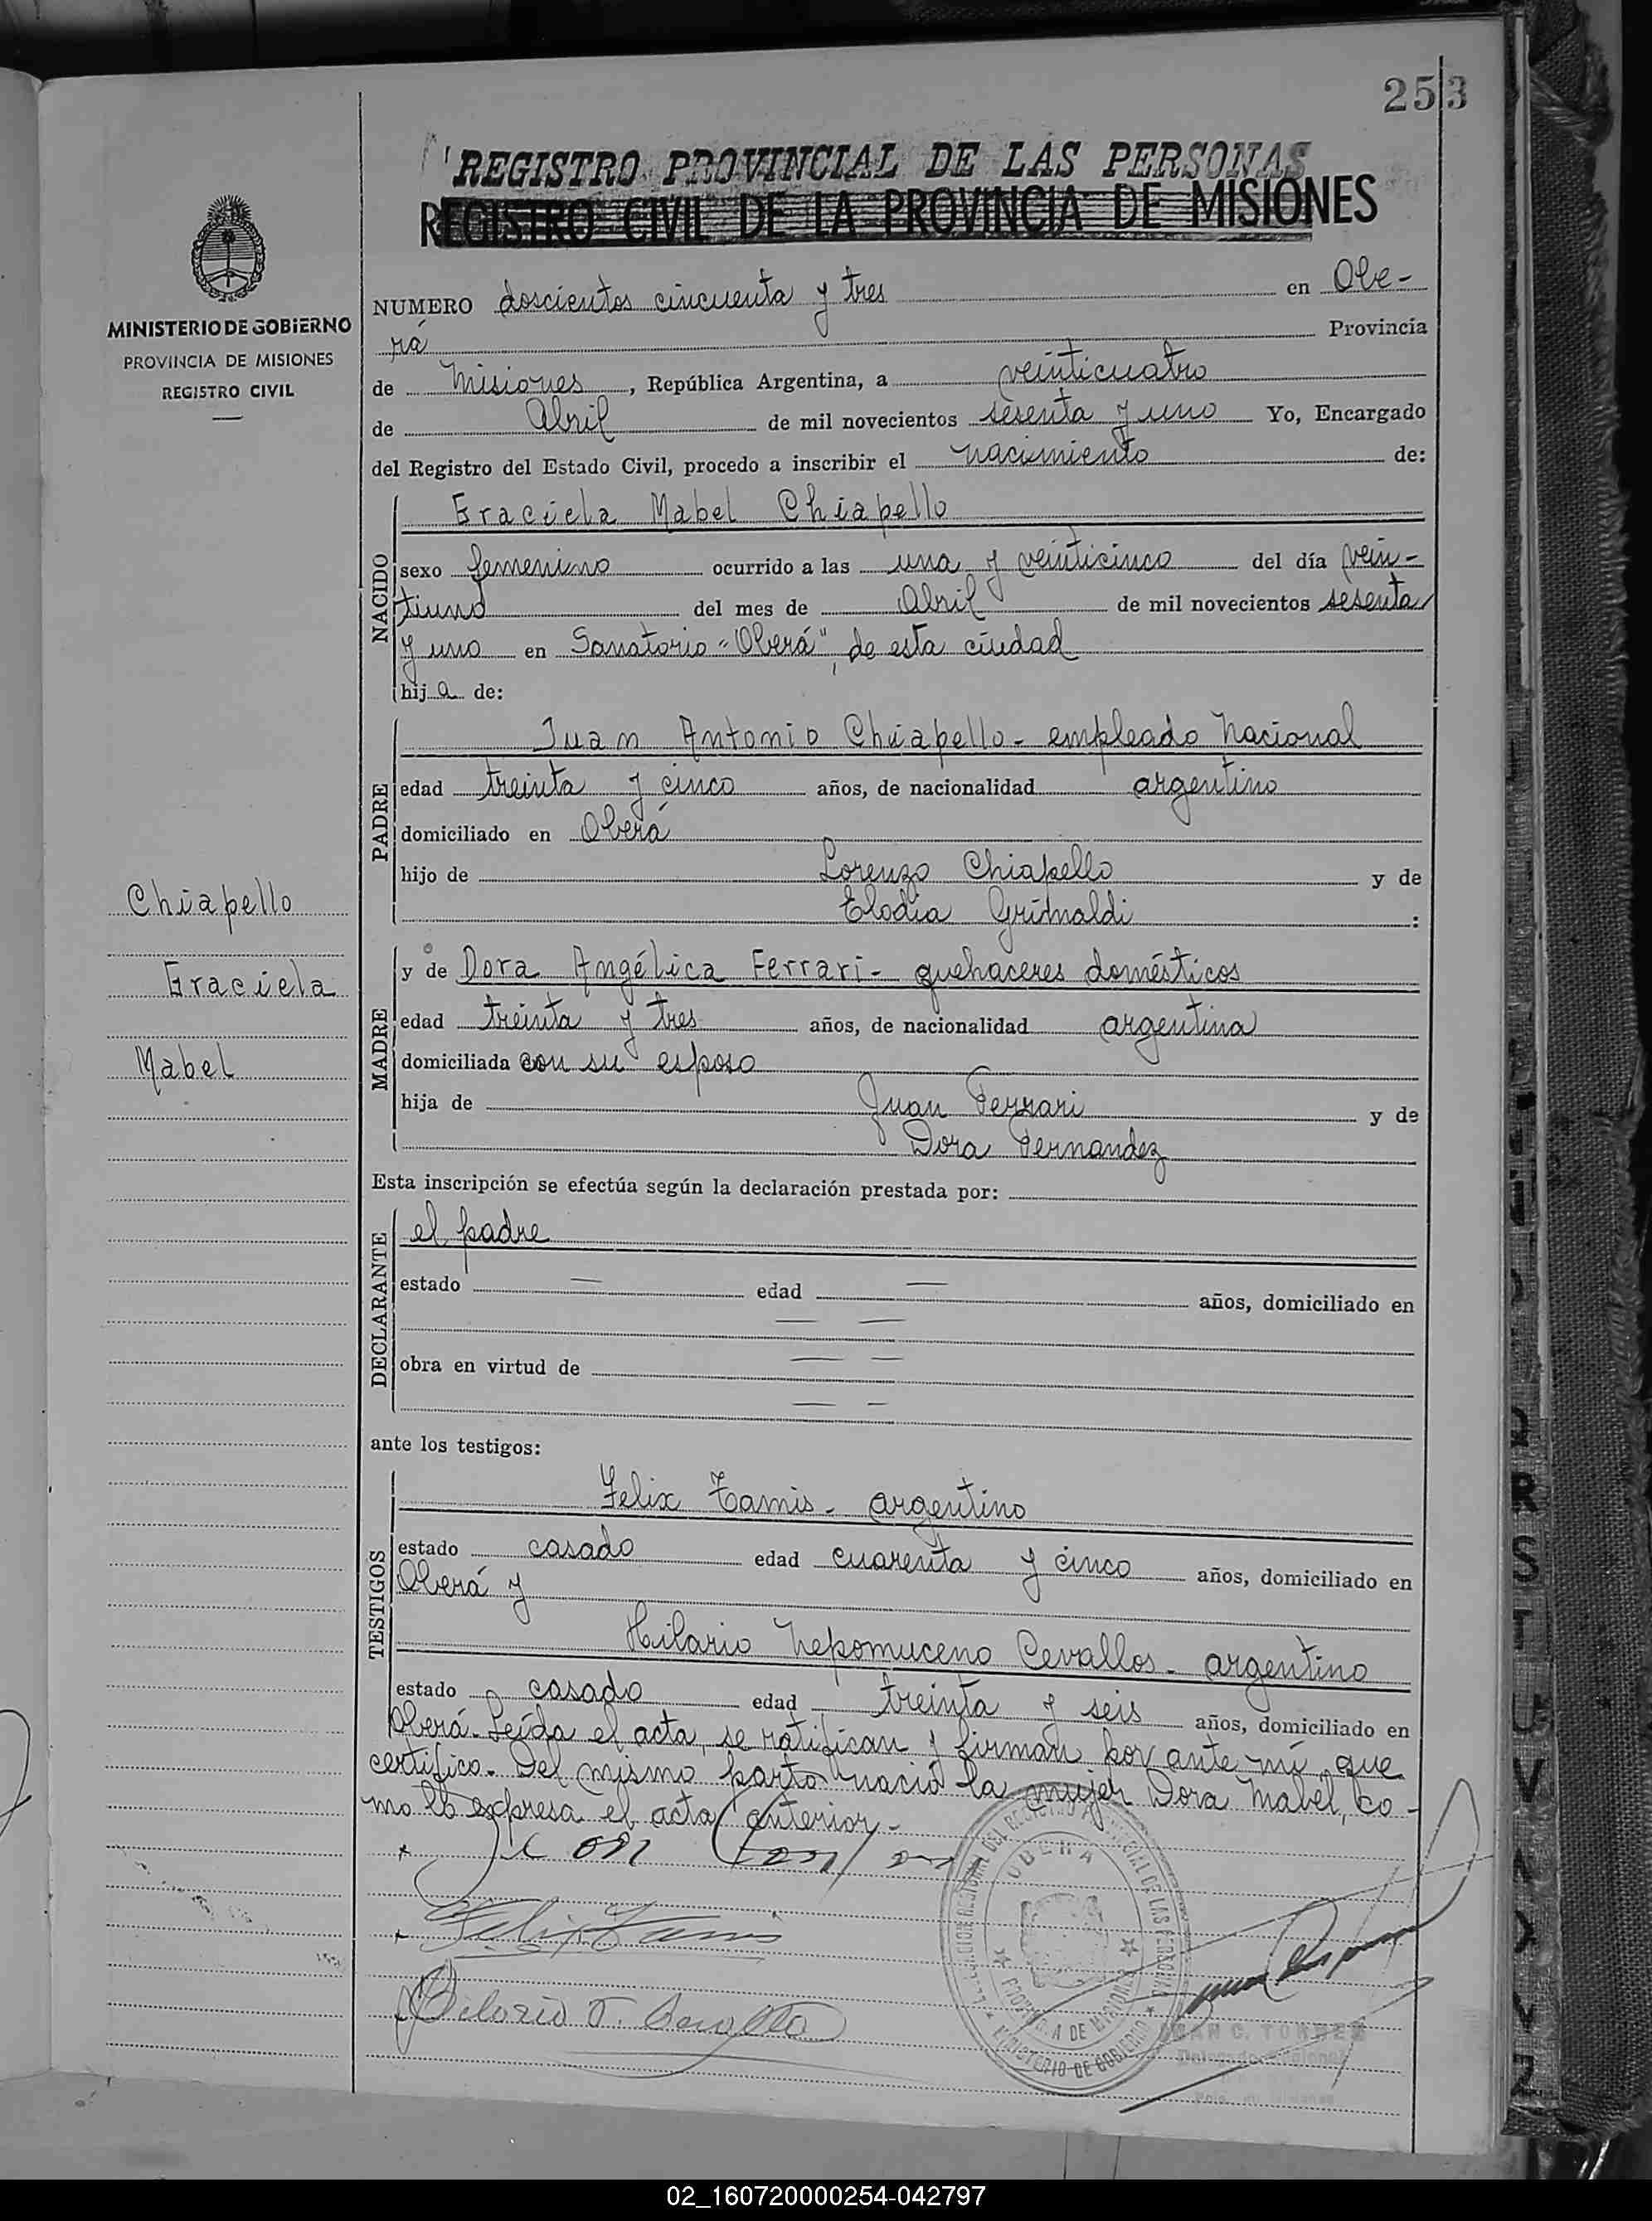 253
REGISTRO PROVINCIAL DE LAS PERSONAS
REGISTRO CIVIL DE LA PROVINCIA DE MISIONES
MINISTERIO DE GOBIERNO
PROVINCIA DE MISIONES
REGISTRO CIVIL
NUMERO doscientos cincuenta y tres en Obe-
rá Provincia
de Misiones, República Argentina, a veinticuatro
de Abril de mil novecientos sesenta y uno Yo, Encargado
del Registro del Estado Civil, procedo a inscribir el nacimiento de:
NACIDO
Graciela Mabel Chiapello
sexo femenino ocurrido a las una y veinticinco del día vein-
tiuno del mes de Abril de mil novecientos sesenta
y uno en Sanatorio "Oberá", de esta ciudad
hija de:
PADRE
Juan Antonio Chiapello - empleado Nacional
edad treinta y cinco años, de nacionalidad argentino
domiciliado en Oberá
hijo de Lorenzo Chiapello y de
Elodia Grimaldi :
Chiapello
Graciela
Mabel
MADRE
y de Dora Angélica Ferrari - quehaceres domésticos
edad treinta y tres años, de nacionalidad argentina
domiciliada con su esposo
hija de Juan Ferrari y de
Dora Fernandez
Esta inscripción se efectúa según la declaración prestada por:
DECLARANTE
el padre
estado — edad — años, domiciliado en
— —
obra en virtud de — —
— -
ante los testigos:
TESTIGOS
Felix Tamis - argentino
estado casado edad cuarenta y cinco años, domiciliado en
Oberá y
Hilario Nepomuceno Cevallos - argentino
estado casado edad treinta y seis años, domiciliado en
Oberá. Leída el acta, se ratifican y firman por ante mí que
certifico. Del mismo parto nació la mujer Dora Mabel, co-
mo lo expresa el acta anterior.-
Felix Tamis
OBERA
PROVINCIA DE MISIONES
MINISTERIO DE GOBIERNO
JUAN C. TORRES
Delegado Regional
02_160720000254-042797